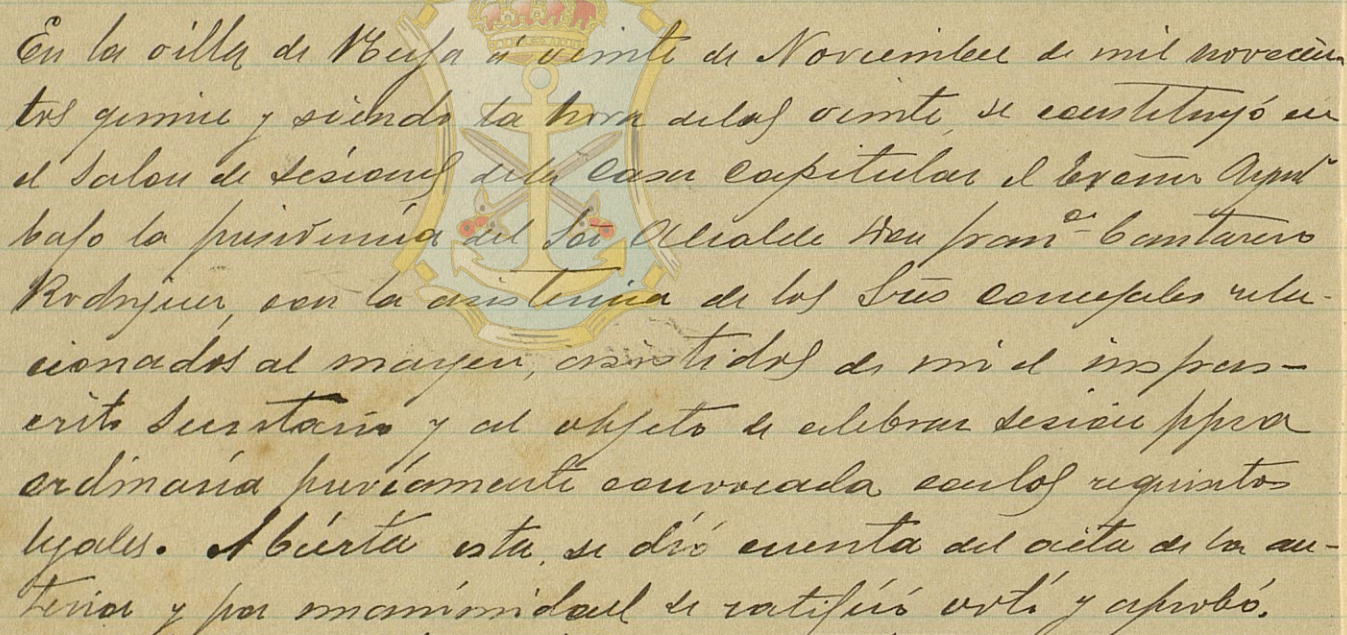 En la villa de Meysa á veinte de Noviembre de mil novecien
tos quince y siendo la hora delas veinte se constituyó en
el Salon de Sesiones dela Casa Capitular el Excmo Aynt
bajo la presidencia del Sor Alcalde Don Franco Cantarero
Rodriguez, con la asistencia de los Sres concejales rela-
cionados al margen, asistidos de mi el infras-
crito Secretario y al objeto de celebrar sesion ppca
ordinaria previamente convocada conlos requisitos
legales. Abierta esta, se dió cuenta del acta de la an-
terior y por unanimidad se ratificó votó y aprobó.